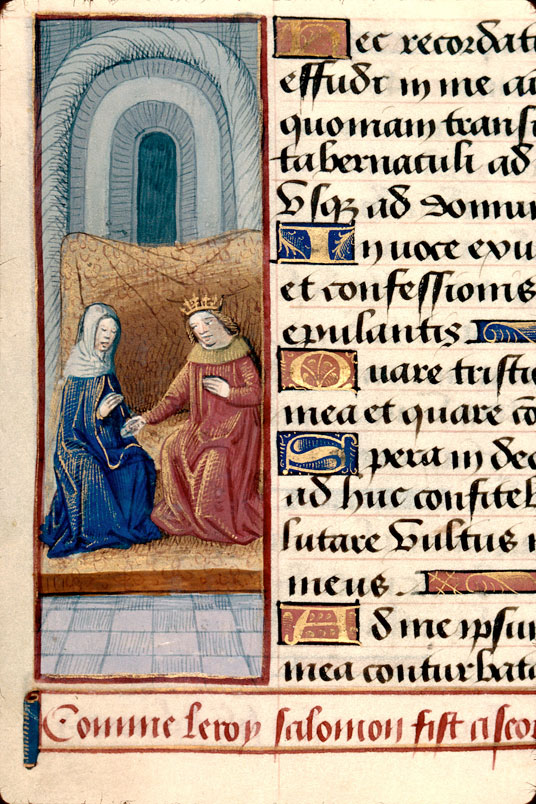 Hec recordat
effudi in me a
quoniam trans
tabernaculi ad
Vsqz ad domu
In voce exu
et confessionis
epulantis
Quare tristi
mea et quare co
Spera in de
ad huc confiteb
lutare Vultus
meus
Ad me ipsu
mea conturbat
Comme leroy salomon fist aseo